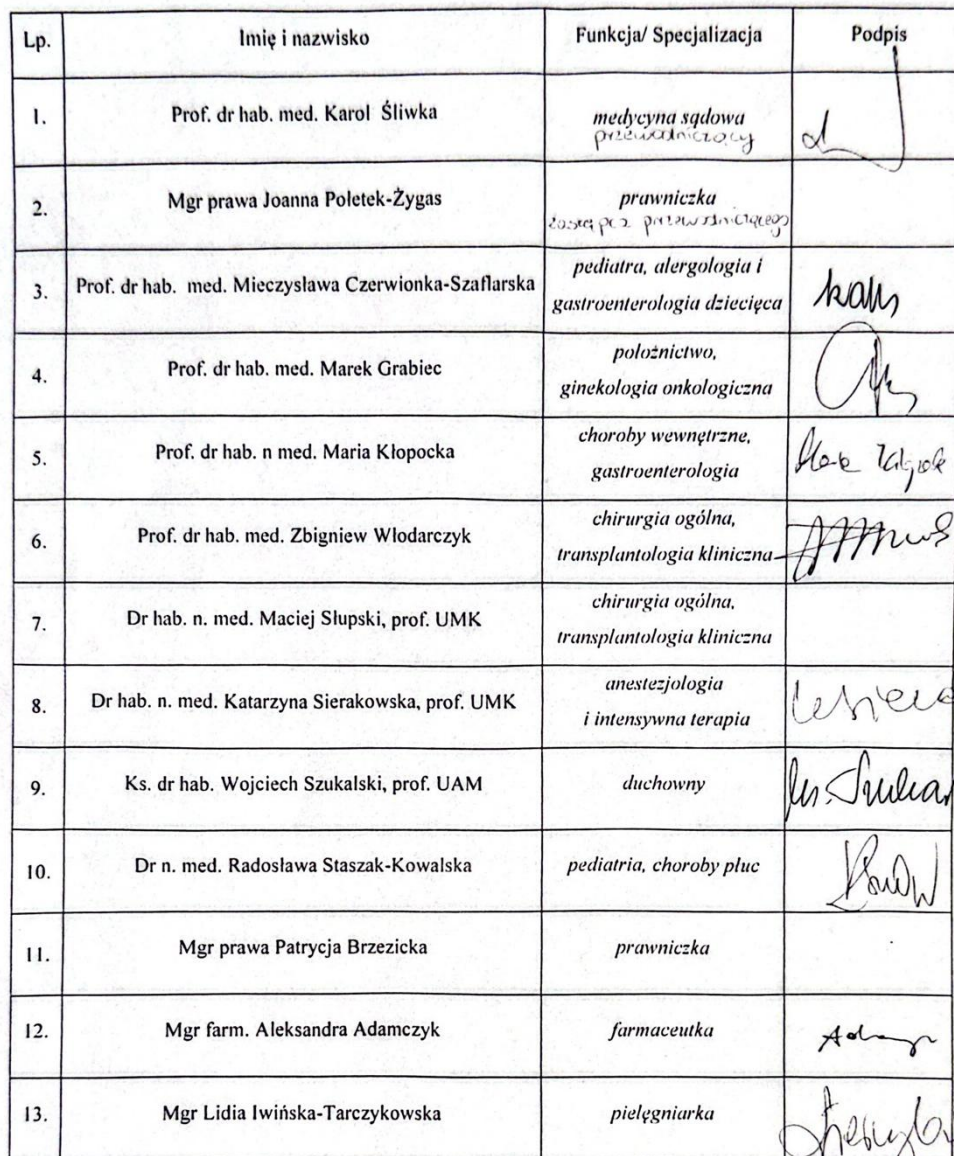 Lp. Imię i nazwisko Funkcja/ Specjalizacja Podpis
1. Prof. dr hab. med. Karol Śliwka medycyna sądowa
przewodniczący
2. Mgr prawa Joanna Poletek-Żygas prawniczka
zastępca przewodniczącego
3. Prof. dr hab. med. Mieczysława Czerwionka-Szaflarska pediatra, alergologia i
gastroenterologia dziecięca
4. Prof. dr hab. med. Marek Grabiec położnictwo,
ginekologia onkologiczna
5. Prof. dr hab. n med. Maria Kłopocka choroby wewnętrzne,
gastroenterologia
6. Prof. dr hab. med. Zbigniew Włodarczyk chirurgia ogólna,
transplantologia kliniczna
7. Dr hab. n. med. Maciej Słupski, prof. UMK chirurgia ogólna,
transplantologia kliniczna
8. Dr hab. n. med. Katarzyna Sierakowska, prof. UMK anestezjologia
i intensywna terapia
9. Ks. dr hab. Wojciech Szukalski, prof. UAM duchowny
10. Dr n. med. Radosława Staszak-Kowalska pediatria, choroby płuc
11. Mgr prawa Patrycja Brzezicka prawniczka
12. Mgr farm. Aleksandra Adamczyk farmaceutka
13. Mgr Lidia Iwińska-Tarczykowska pielęgniarka